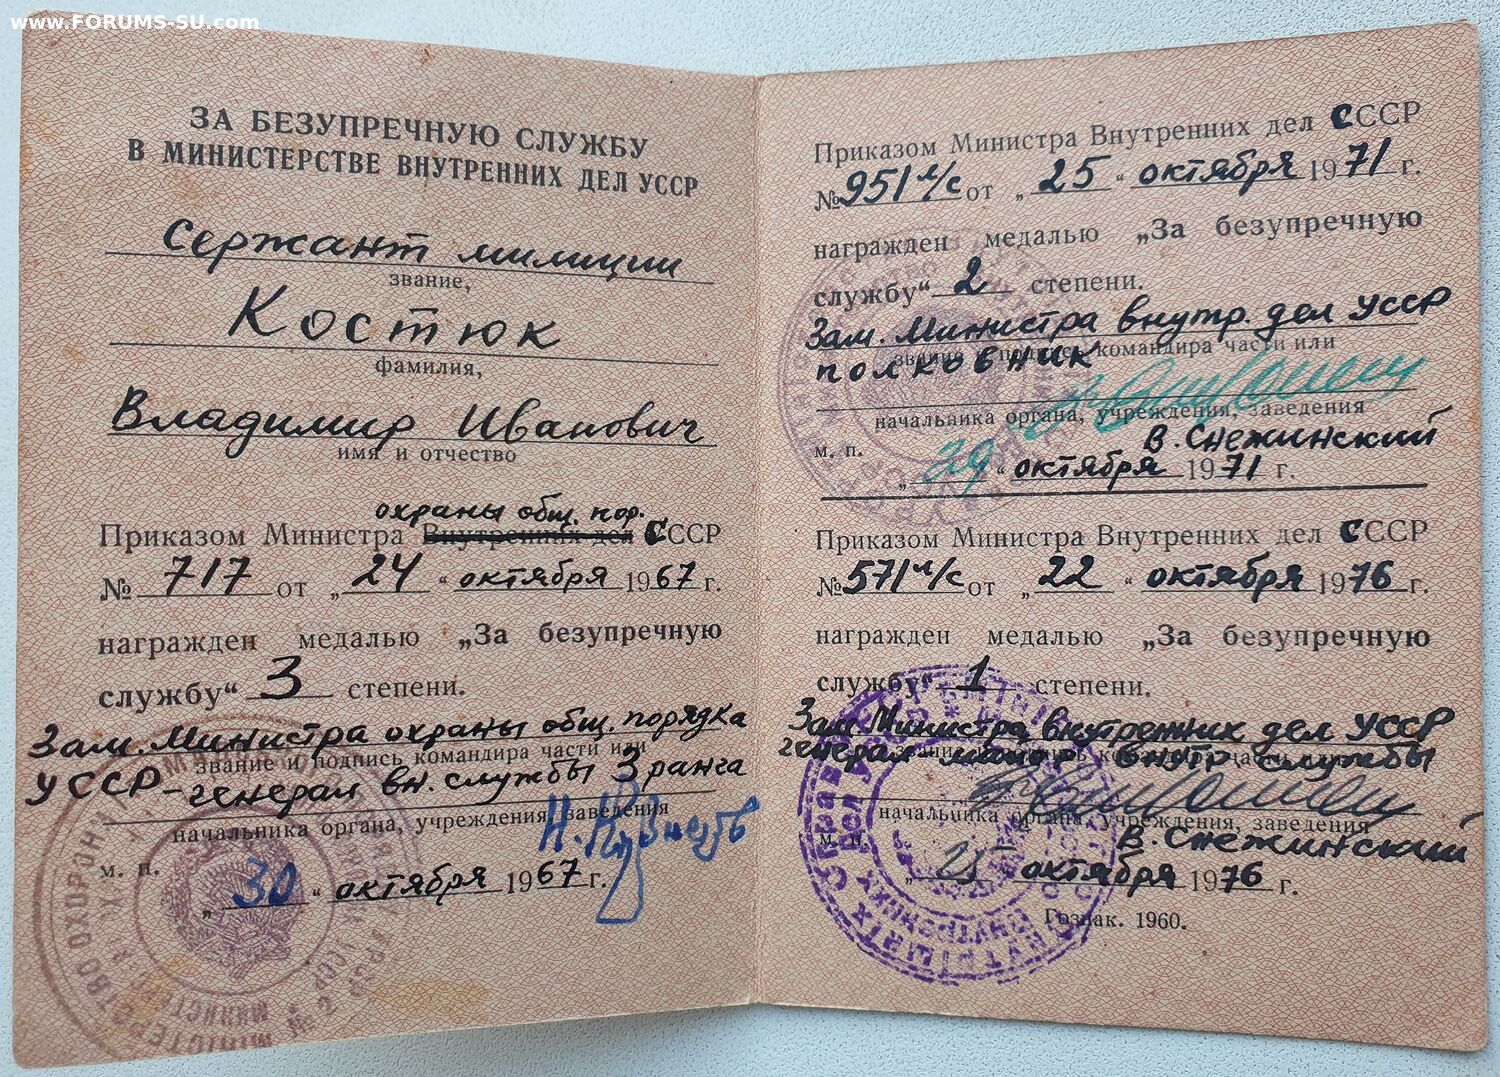 www.FORUMS-SU.com
ЗА БЕЗУПРЕЧНУЮ СЛУЖБУ
В МИНИСТЕРСТВЕ ВНУТРЕННИХ ДЕЛ УССР
Сержант милиции
звание,
Костюк
фамилия,
Владимир Иванович
имя и отчество
охраны общ. пор.
Приказом Министра Внутренних дел СССР
№ 717 от „24“ октября 1967 г.
награжден медалью „За безупречную
службу“ 3 степени.
Зам. Министра охраны общ. порядка
звание и подпись командира части или
УССР - генерал вн. службы 3 ранга
начальника органа, учреждения, заведения
м. п.
„30“ октября 1967 г.
Приказом Министра Внутренних дел СССР
№ 951 л/с от „25“ октября 1971 г.
награжден медалью „За безупречную
службу“ 2 степени.
Зам. Министра внутр. дел УССР
звание и подпись командира части или
полковник
начальника органа, учреждения, заведения
В. Снежинский
м. п.
„29“ октября 1971 г.
Приказом Министра Внутренних дел СССР
№ 571 л/с от „22“ октября 1976 г.
награжден медалью „За безупречную
службу“ 1 степени.
Зам. Министра внутренних дел УССР
звание и подпись командира части или
генерал-майор внутр. службы
начальника органа, учреждения, заведения
В. Снежинский
м. п.
„25“ октября 1976 г.
Гознак. 1960.